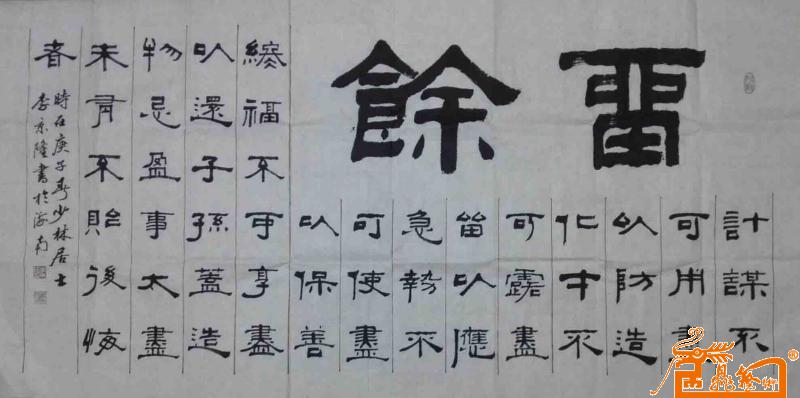 留餘
計謀不
可用盡
以防造
化才不
可露盡
留以應
急勢不
可使盡
以保善
緣福不可享盡
以還子孫蓋造
物忌盈事太盡
未有不貽後悔
者
時在庚子春少林居士
李京隆書於海南